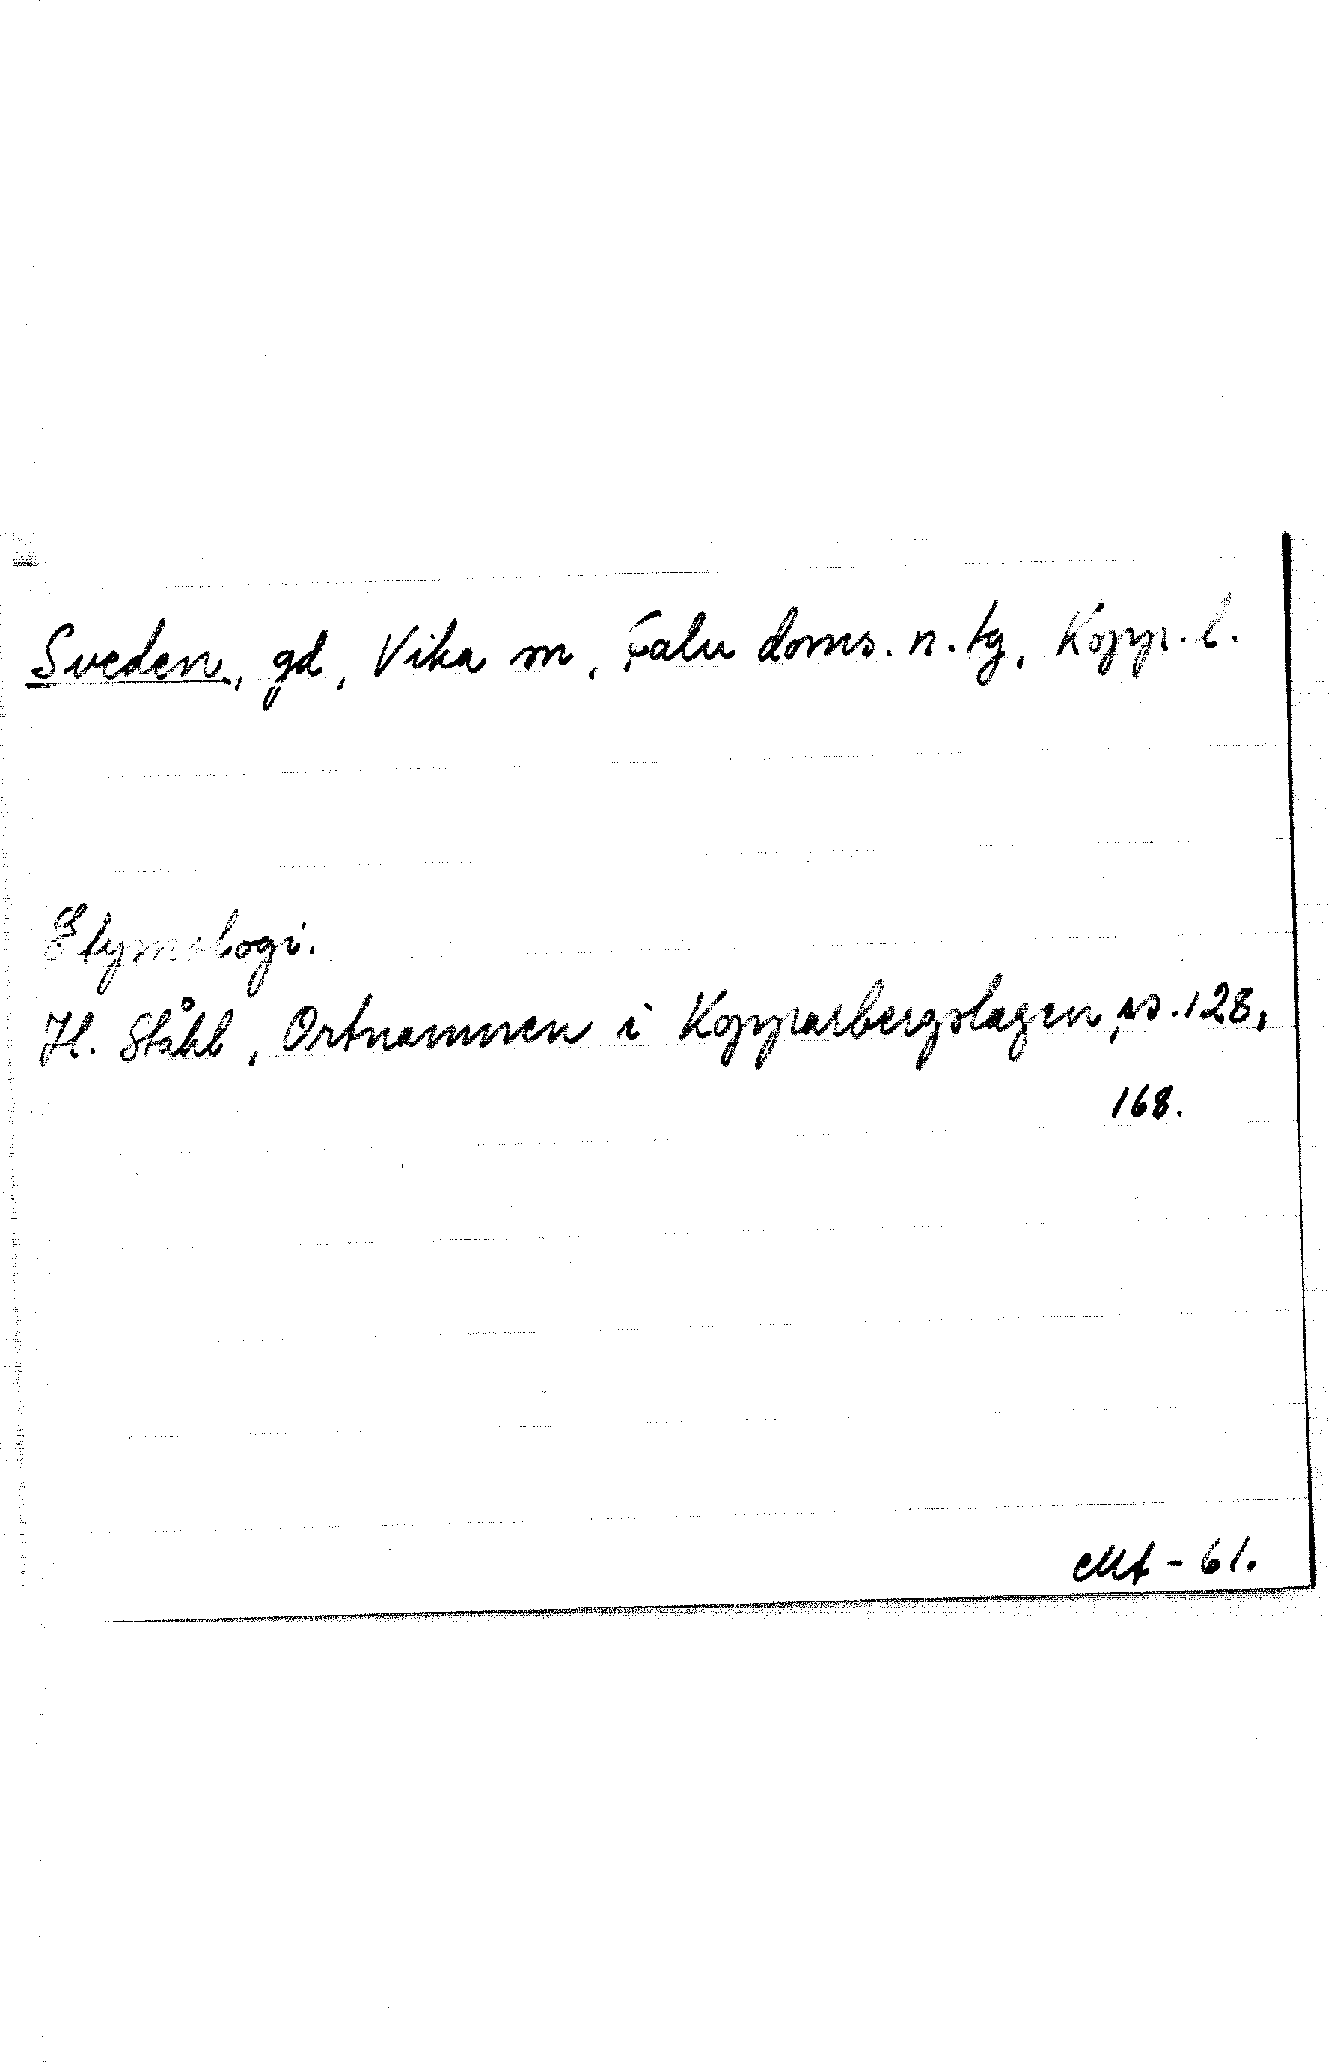 Sveden, gd, Vika sn, Falu doms. n. tg, Kopp. l.
Etymologi.
H. Ståhl, Ortnamnen i Kopparbergslagen, s. 128,
168.
MA - 61.